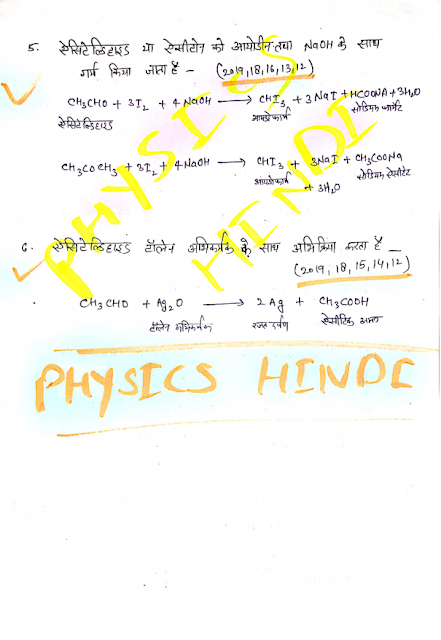 5. ऐसिटेल्डिहाइड या ऐसीटोन को आयोडीन तथा NaOH के साथ
गर्म किया जाता है – (2019,18,16,13,12)
CH₃CHO + 3I₂ + 4NaOH → CHI₃ + 3NaI + HCOONA + 3H₂O
ऐसिटेल्डिहाइड आयडोफार्म सोडियम फार्मेट
CH₃COCH₃ + 3I₂ + 4NaOH → CHI₃ + 3NaI + CH₃COONa
आयडोफार्म सोडियम ऐसीटेट
+ 3H₂O
PHYSICS
HINDI
6. ऐसिटेल्डिहाइड टॉलेन अभिकर्मक के साथ अभिक्रिया करता है –
(2019, 18, 15, 14, 12)
CH₃CHO + Ag₂O → 2Ag + CH₃COOH
टॉलेन अभिकर्मक रजत दर्पण ऐसीटिक अम्ल
PHYSICS HINDI